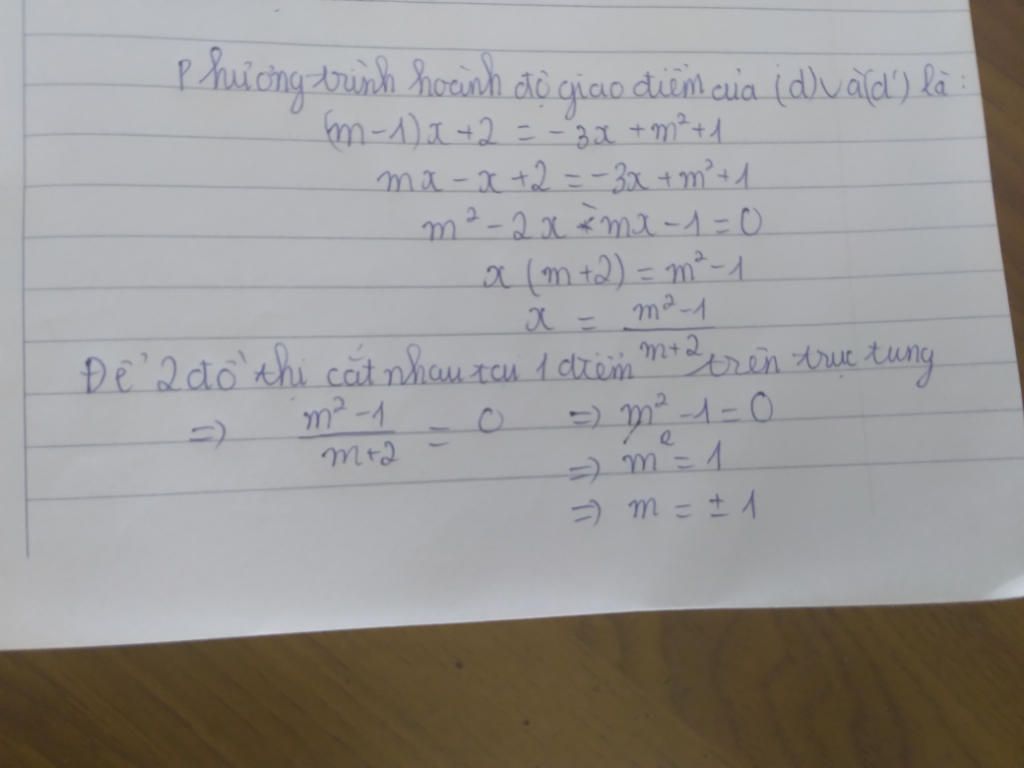 Phương trình hoành độ giao điểm của (d) và (d') là:
(m-1)x+2 = -3x+m²+1
mx-x+2=-3x+m²+1
m²-2x-mx-1=0
x(m+2)=m²-1
x = \frac{m²-1}{m+2}
Để 2 đồ thị cắt nhau tại 1 điểm trên trục tung
=> \frac{m²-1}{m+2} = 0 => m²-1=0
=> m²=1
=> m = ±1